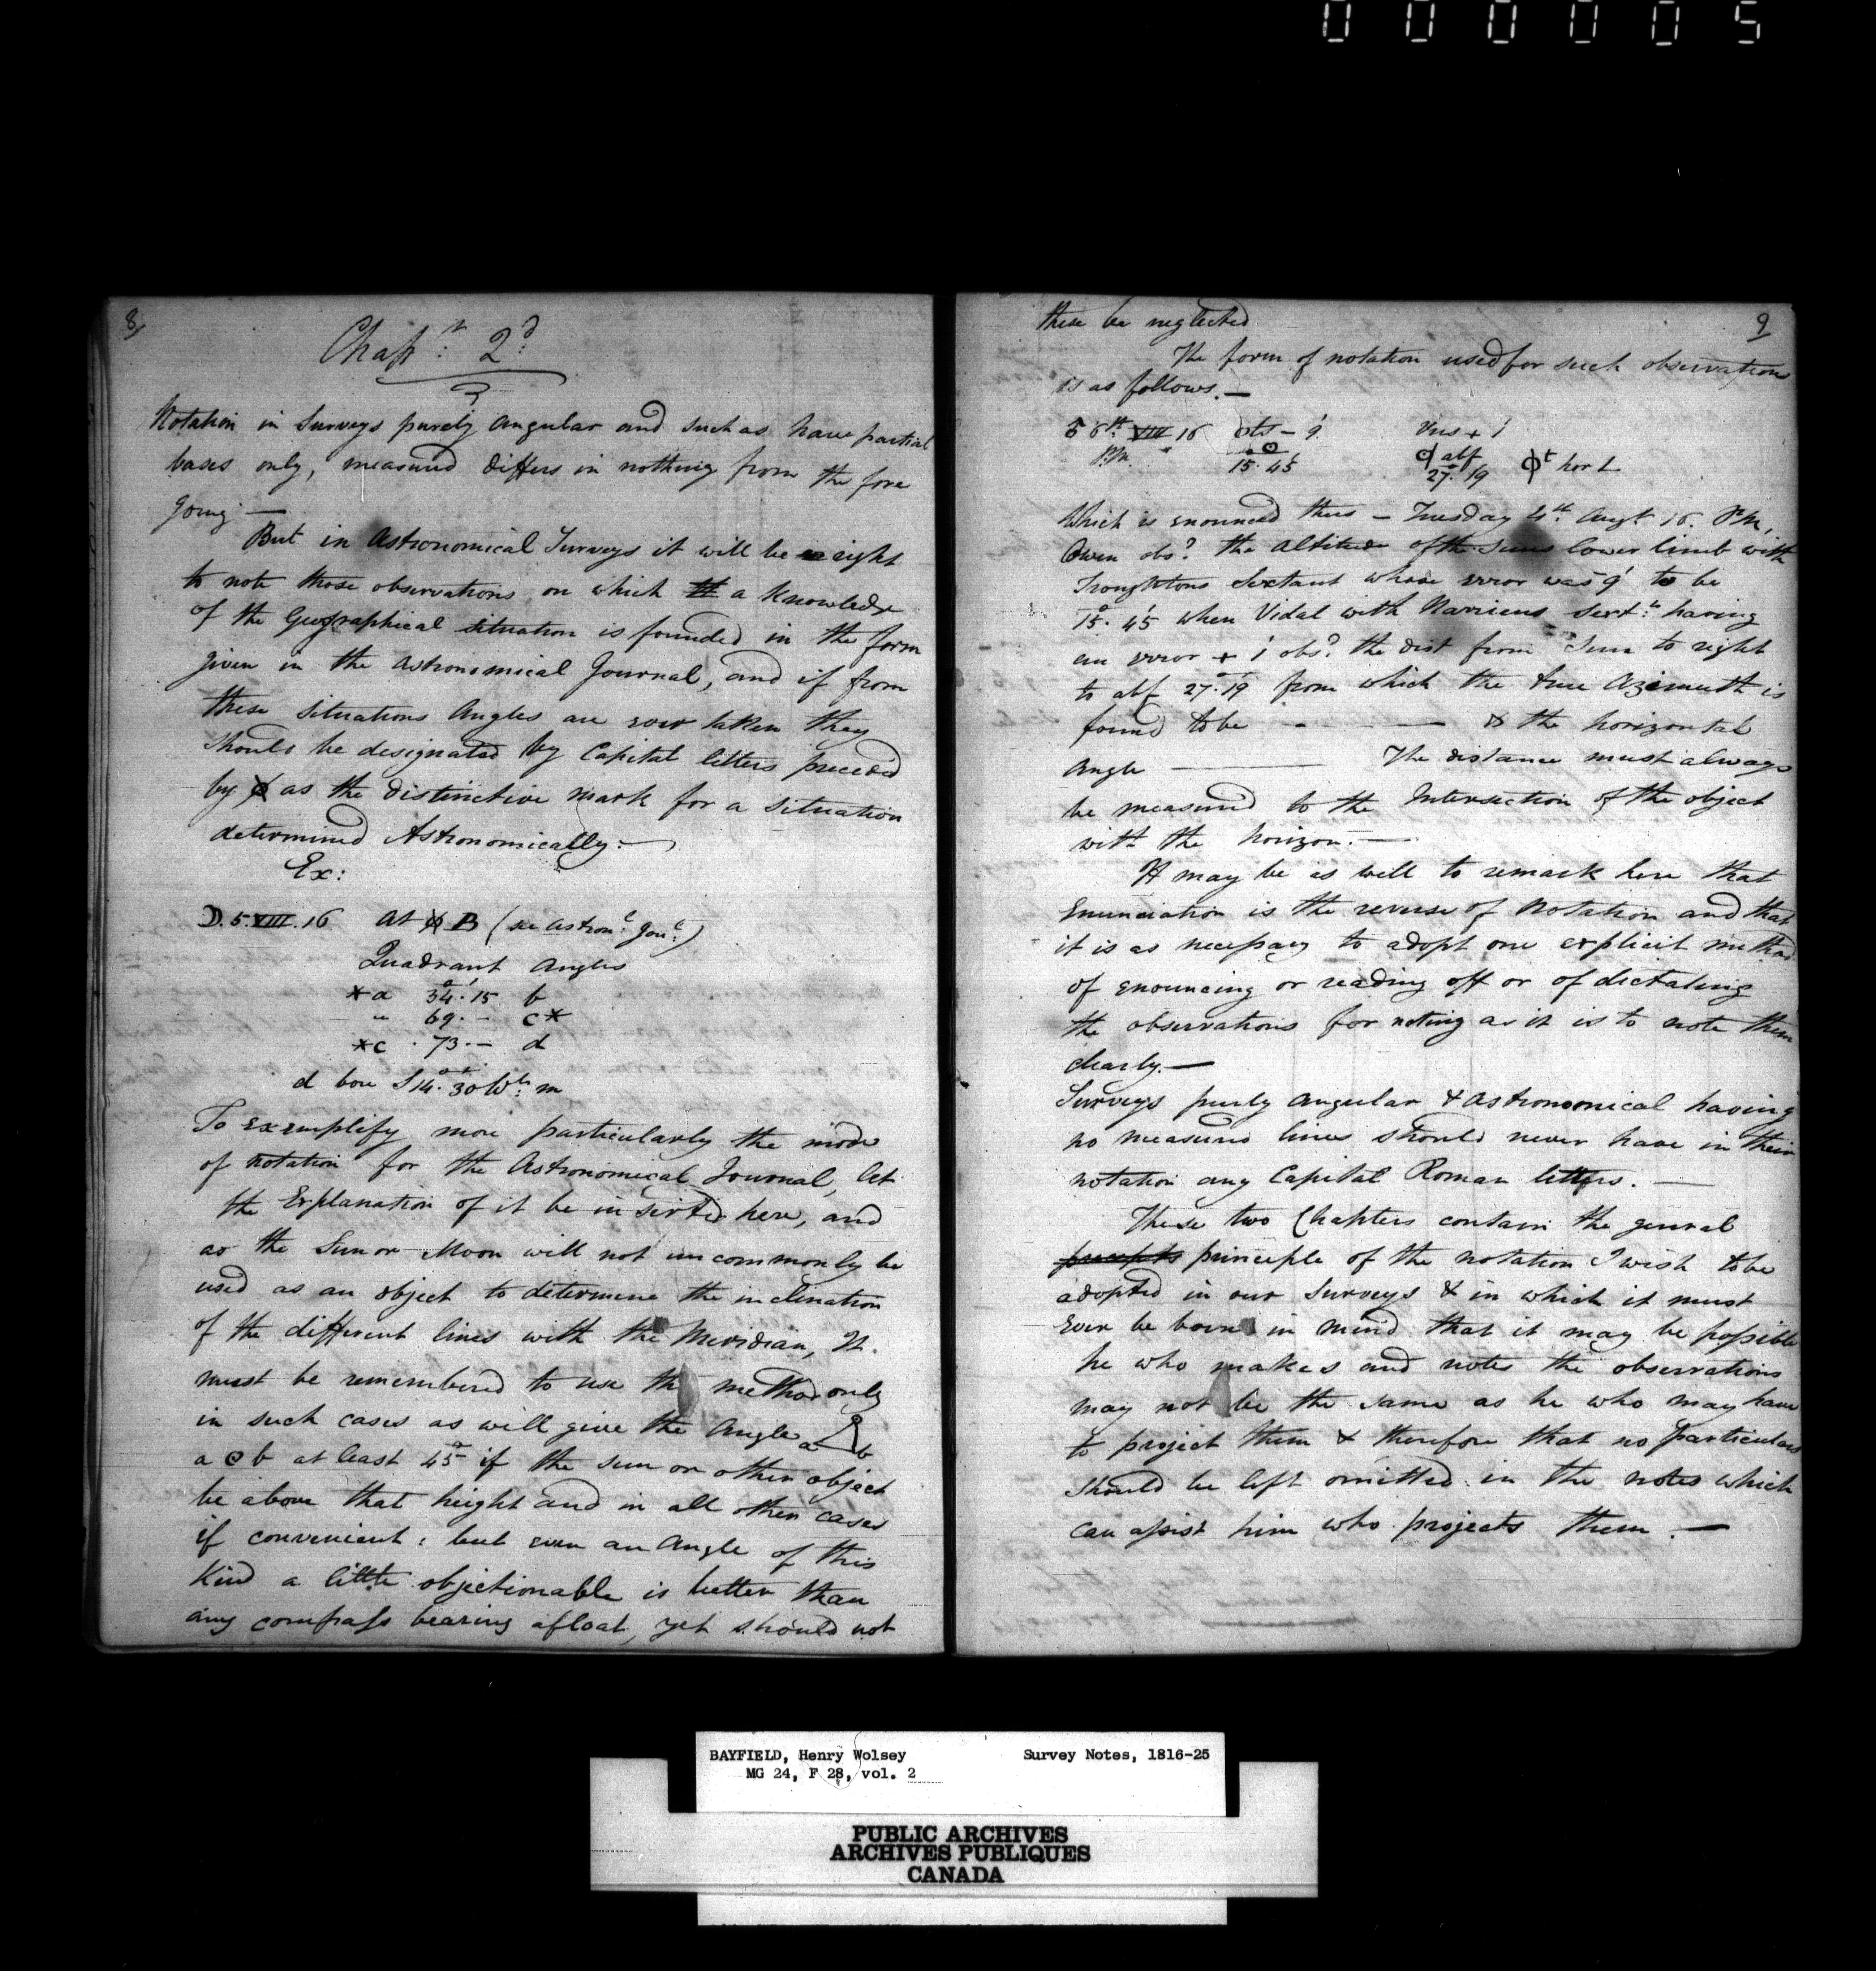 000005
8
Chapr: 2d
Notation in Surveys purely angular and such as have partial
bases only, measured differs in nothing from the fore
going —
But in Astronomical Surveys it will be right
to note those observations on which a Knowledge
of the Geographical situation is founded in the form
given in the Astronomical Journal, and if from
these situations Angles are ever taken they
should be designated by Capital letters preceded
by ϕ as the distinctive mark for a situation
determined Astronomically: —
Ex:
D. 5. VIII. 16 At ϕ B (see Astronl: Jourl:)
Quadrant Angles
*a 34°. 15' b
" 69. — c*
*c . 73. — d
d bore S 14°. 30' Wt: m
To exemplify more particularly the mode
of notation for the Astronomical Journal, let
the Explanation of it be inserted here, and
as the Sun or Moon will not uncommonly be
used as an object to determine the inclination
of the different lines with the Meridian, It
must be remembered to use the method only
in such cases as will give the Angle a b
a ʘ b at least 45° if the sun or other object
be above that height and in all other cases
if convenient: but even an Angle of this
Kind a little objectionable is better than
any compass bearing afloat, yet should not
9
these be neglected
The form of notation used for such observations
is as follows. —
6th: VIII 16 ots — 9' Vns + 1'
P.M. 15°. 45' abf 27°. 19' hor L
Which is enounced thus — Tuesday 4th: Augt 16. P.M.
Owen obsd: the Altitude of the Suns lower limb with
Troughtons Sextant whose error was 9' to be
15°. 45' when Vidal with Narriens Sextt: having
an error + 1' obsd: the dist from Sun to right
to abf 27°. 19' from which the true Azimuth is
found to be - — — & the horizontal
Angle ——— The distance must always
be measured to the Intersection of the object
with the horizon. —
It may be as well to remark here that
Enunciation is the reverse of Notation and that
it is as necessary to adopt one explicit method
of enouncing or reading off or of dictating
the observations for noting as it is to note them
clearly. —
Surveys purely angular & astronomical having
no measured lines should never have in their
notation any Capital Roman letters. —
These two Chapters contain the general
precepts principle of the notation I wish to be
adopted in our Surveys & in which it must
Ever be borne in mind that it may be possible
he who makes and notes the observations
may not be the same as he who may have
to project them & therefore that no particulars
should be left omitted in the notes which
can assist him who projects them. —
BAYFIELD, Henry Wolsey Survey Notes, 1816-25
MG 24, F 28, vol. 2
PUBLIC ARCHIVES
ARCHIVES PUBLIQUES
CANADA